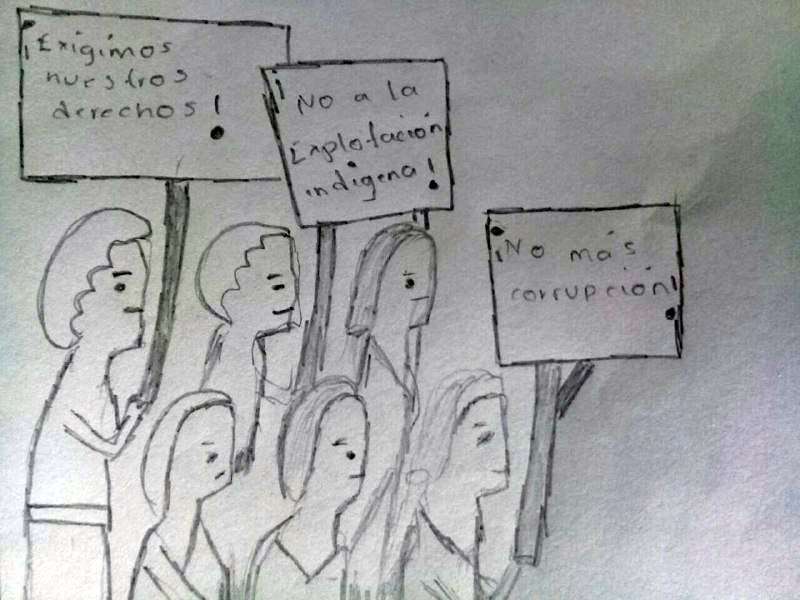 ¡Exigimos
nuestros
derechos!
¡No a la
Explotación
indigena!
¡No más
corrupción!